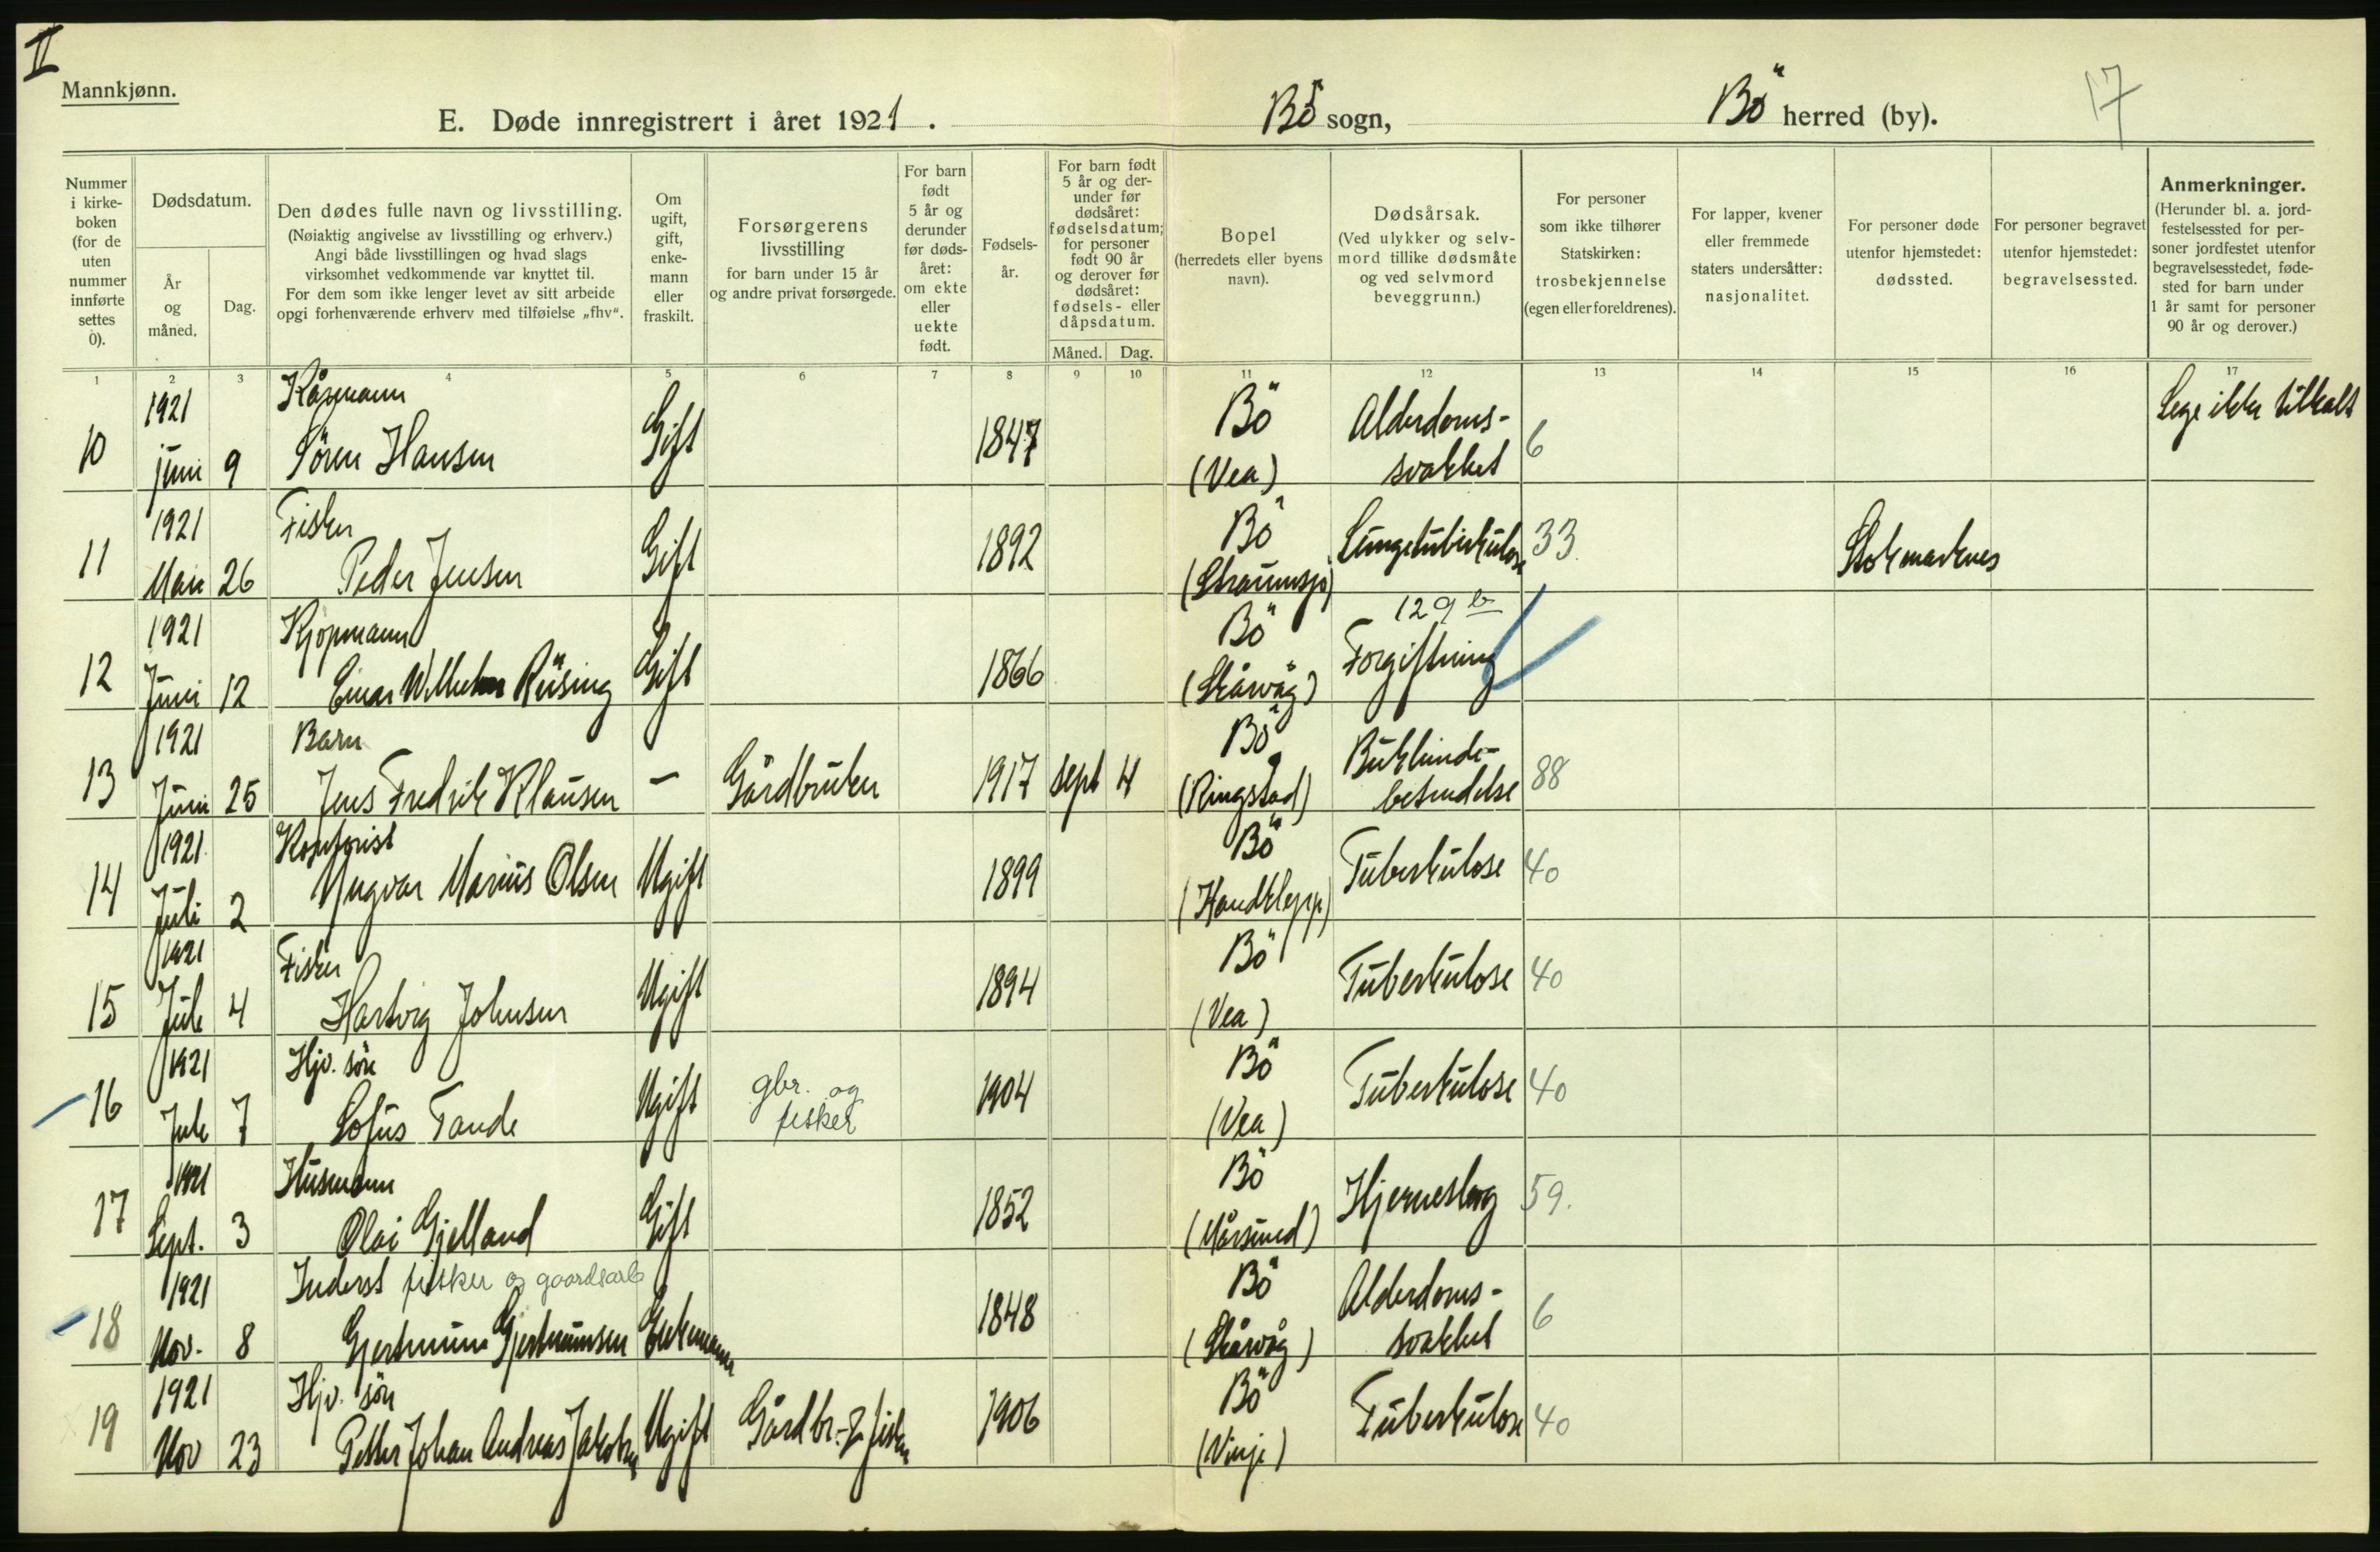 II
Mannkjønn.
E. Døde innregistrert i året 1921. Bö sogn, Bö herred (by). 17
Nummer i kirke-boken (for de uten nummer innførte settes 0).
Dødsdatum.
År og måned.
Dag.
Den dødes fulle navn og livsstilling.
(Nøiaktig angivelse av livsstilling og erhverv.)
Angi både livsstillingen og hvad slags
virksomhet vedkommende var knyttet til.
For dem som ikke lenger levet av sitt arbeide
opgi forhenværende erhverv med tilføielse „fhv“.
Om ugift, gift, enke-mann eller fraskilt.
Forsørgerens
livsstilling
for barn under 15 år
og andre privat forsørgede.
For barn født 5 år og derunder før døds-året: om ekte eller uekte født.
Fødsels-år.
For barn født 5 år og der-under før dødsåret: fødselsdatum; for personer født 90 år og derover før dødsåret: fødsels- eller dåpsdatum.
Måned. Dag.
Bopel
(herredets eller byens
navn).
Dødsårsak.
(Ved ulykker og selv-
mord tillike dødsmåte
og ved selvmord
beveggrunn.)
For personer
som ikke tilhører
Statskirken:
trosbekjennelse
(egen eller foreldrenes).
For lapper, kvener
eller fremmede
staters undersåtter:
nasjonalitet.
For personer døde
utenfor hjemstedet:
dødssted.
For personer begravet
utenfor hjemstedet:
begravelsessted.
Anmerkninger.
(Herunder bl. a. jord-
festelsessted for per-
soner jordfestet utenfor
begravelsesstedet, føde-
sted for barn under
1 år samt for personer
90 år og derover.)
1 2 3 4 5 6 7 8 9 10 11 12 13 14 15 16 17
1921 Kårmann Bö Alderdoms- Lege ikke tilkalt
10 juni 9 Sören Hansen Gift 1847 (Vea) svakhet 6
1921 Fisker Bö
11 Mai 26 Peder Jensen Gift 1892 (Straumsjö) Lungetuberkulose 33 Stokmarknes
1921 Kjöpmann Bö 129 b
12 Juni 12 Einar Wilhelm Rüsing Gift 1866 (Skårvåg) Forgiftning
1921 Barn Bö Bukhinde-
13 Juni 25 Jens Fredrik Klausen — Gårdbruker 1917 sept 4 (Ringstad) betendelse 88
1921 Kontorist Bö
14 Juli 2 Yngvar Marius Olsen Ugift 1899 (Handklepp) Tuberkulose 40
1921 Fisker Bö
15 Juli 4 Hartvig Johnsen Ugift 1894 (Vea) Tuberkulose 40
1921 Hjv. sön gbr. og Bö
16 Juli 7 Sofus Tande Ugift fisker 1904 (Vea) Tuberkulose 40
1921 Husmann Bö
17 Sept. 3 Olai Gjelland Gift 1852 (Mårsund) Hjerneslag 59.
1921 Inderst fisker og gaardsarb Bö Alderdoms-
18 Nov. 8 Gjertmun Gjertmunsen Enkemann 1848 (Skårvåg) svakhet 6
1921 Hjv. sön Bö
19 Nov 23 Petter Johan Andreas Jakobsen Ugift Gårdbr. & fisker 1906 (Vinje) Tuberkulose 40